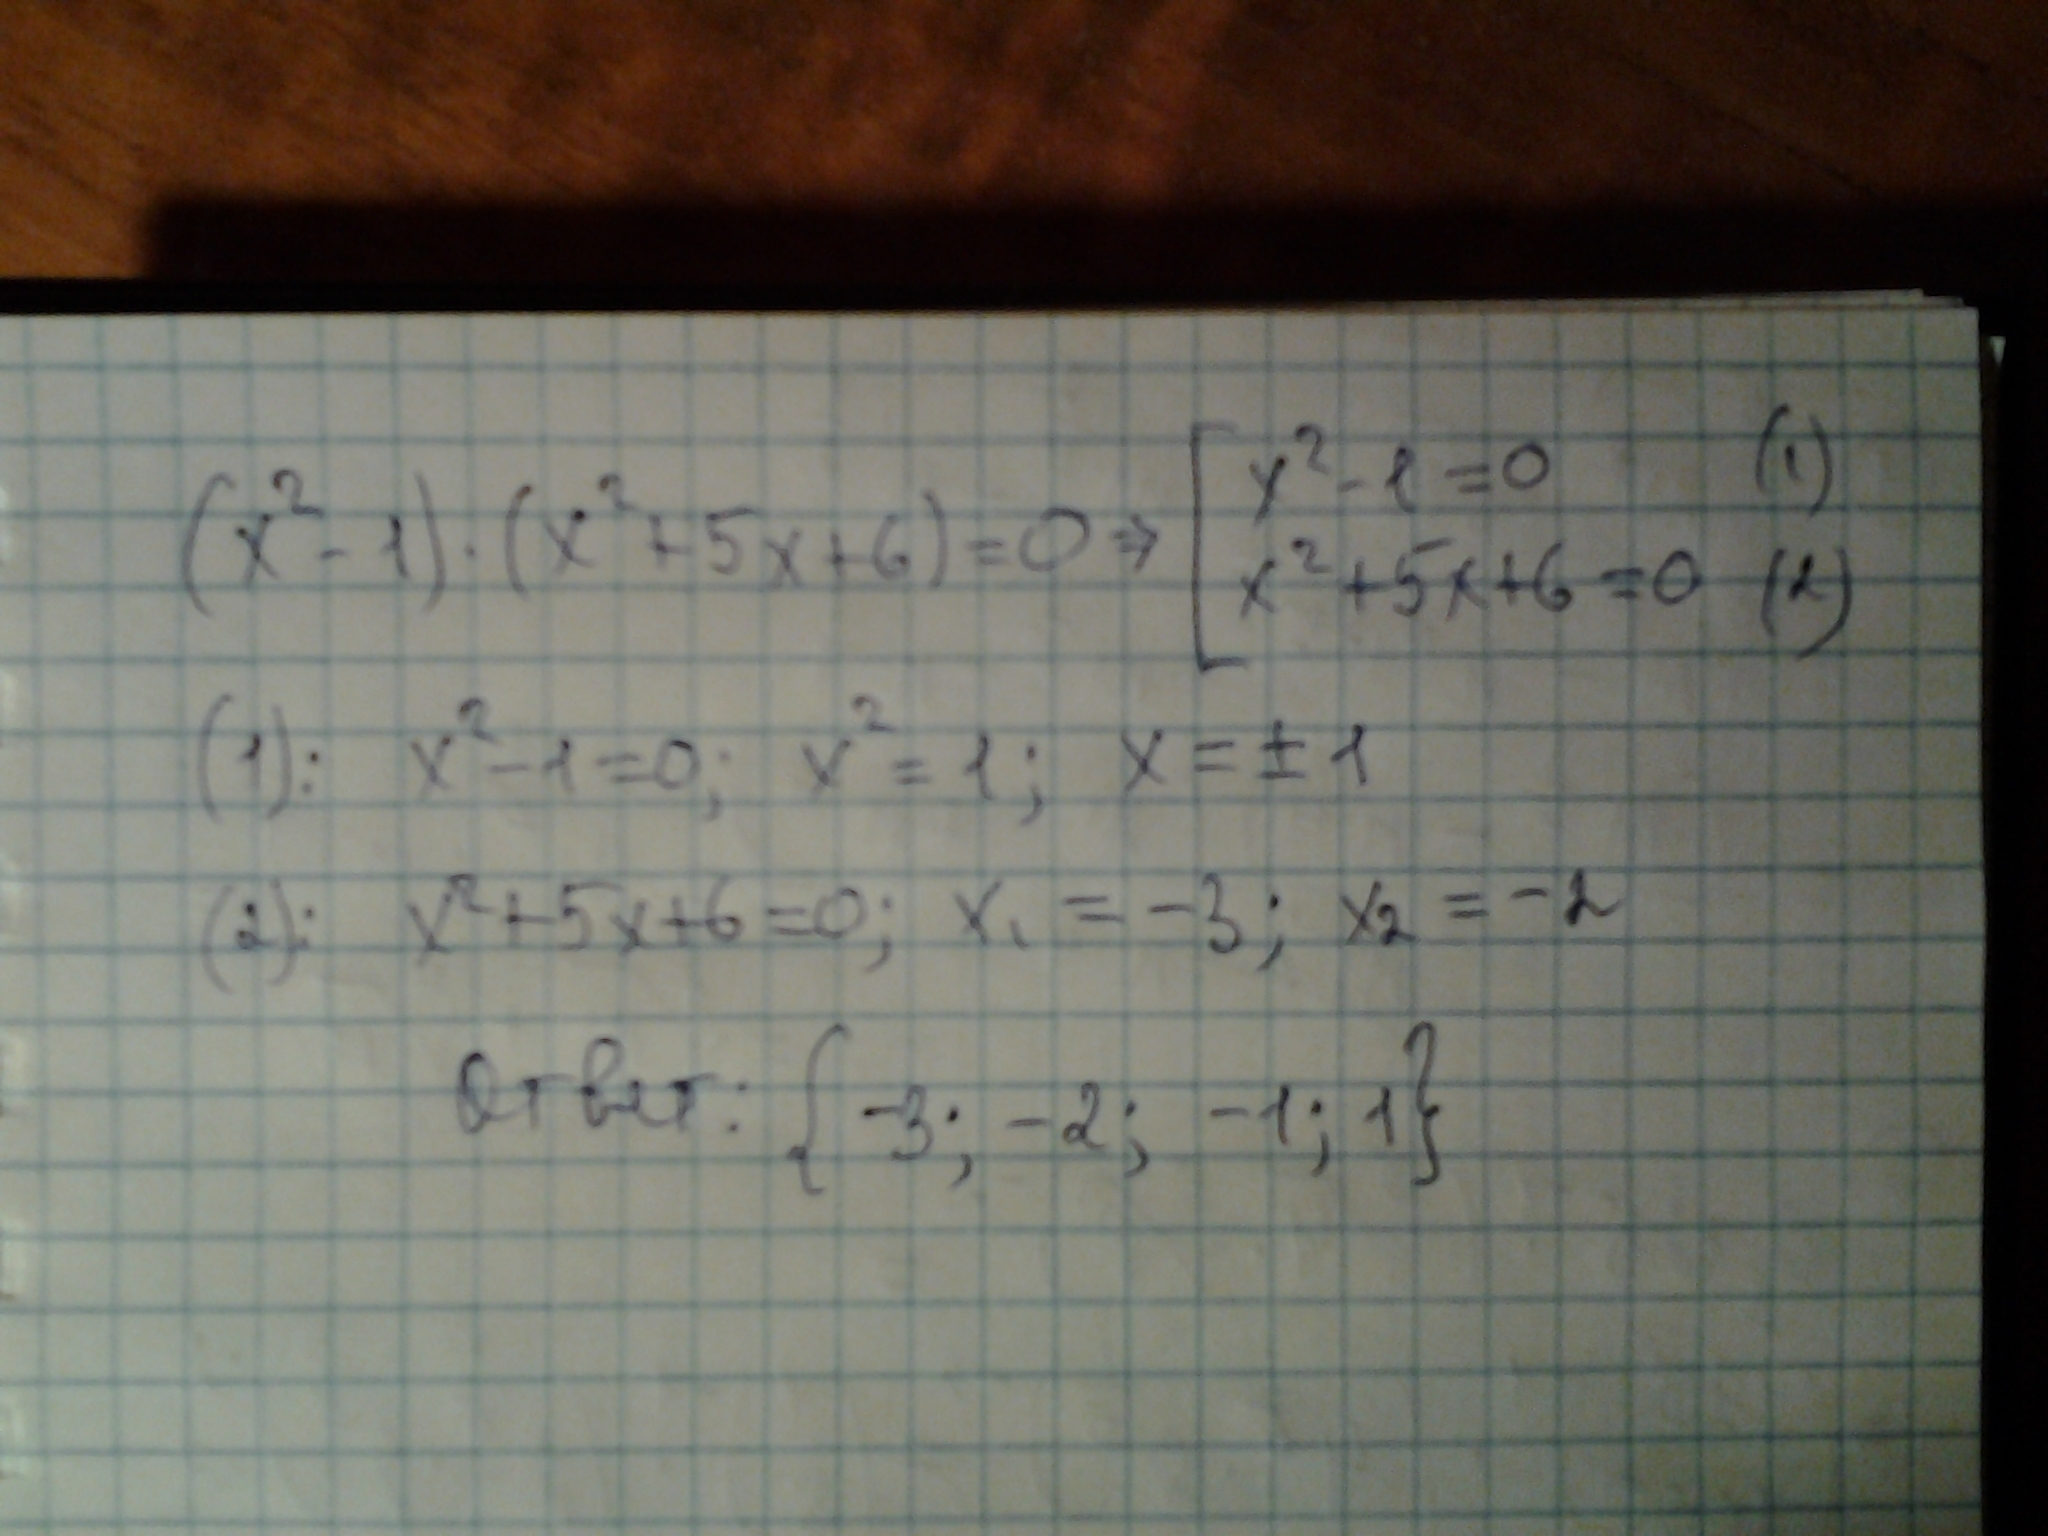 (x²-1)·(x²+5x+6)=0⇒[x²-1=0 (1)
x²+5x+6=0 (2)
(1): x²-1=0; x²=1; x=±1
(2): x²+5x+6=0; x₁=-3; x₂=-2
Ответ: {-3; -2; -1; 1}